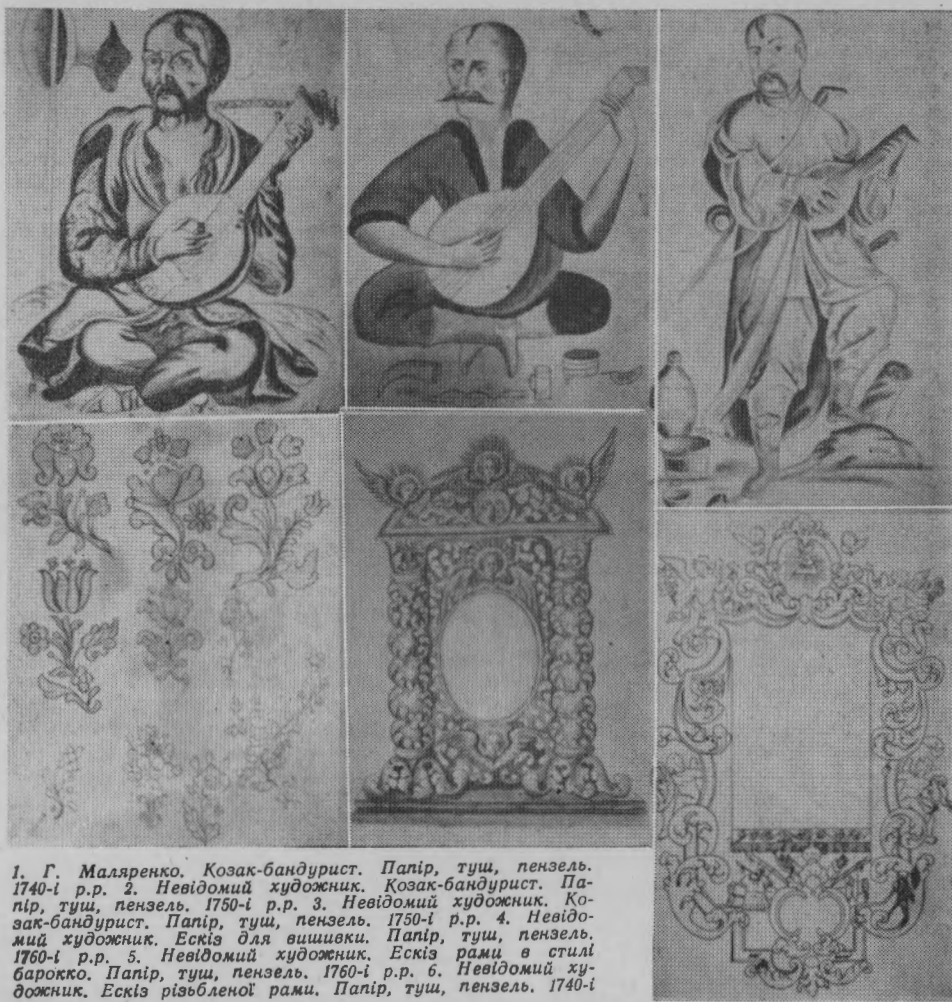 1. Г. Маляренко. Козак-бандурист. Папір, туш, пензель.
1740-і р.р. 2. Невідомий художник. Козак-бандурист. Па-
пір, туш, пензель. 1750-і р.р. 3. Невідомий художник. Ко-
зак-бандурист. Папір, туш, пензель. 1750-і р.р. 4. Невідо-
мий художник. Ескіз для вишивки. Папір, туш, пензель.
1760-і р.р. 5. Невідомий художник. Ескіз рами в стилі
барокко. Папір, туш, пензель. 1760-і р.р. 6. Невідомий ху-
дожник. Ескіз різьбленої рами. Папір, туш, пензель. 1740-і